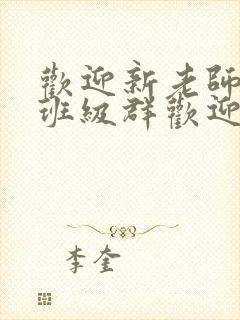 歡迎新老師
班級群歡迎
李奎